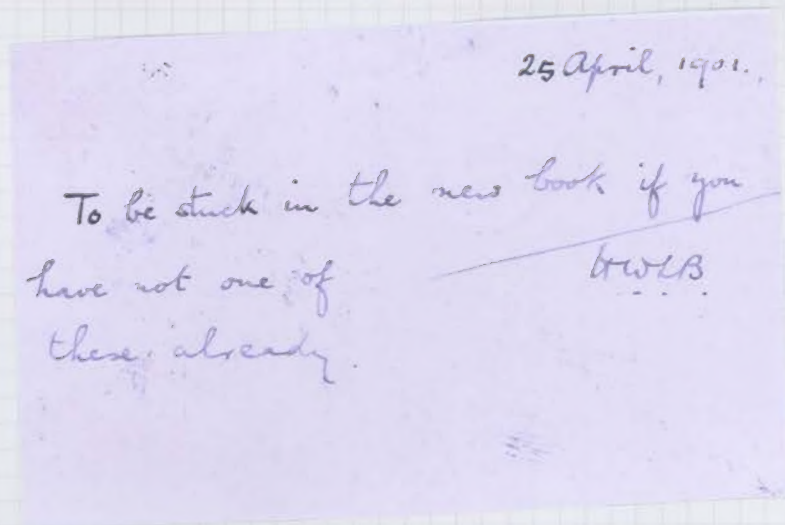 25 April, 1901.
To be stuck in the new book if you
have not one of
these already.
HWLB